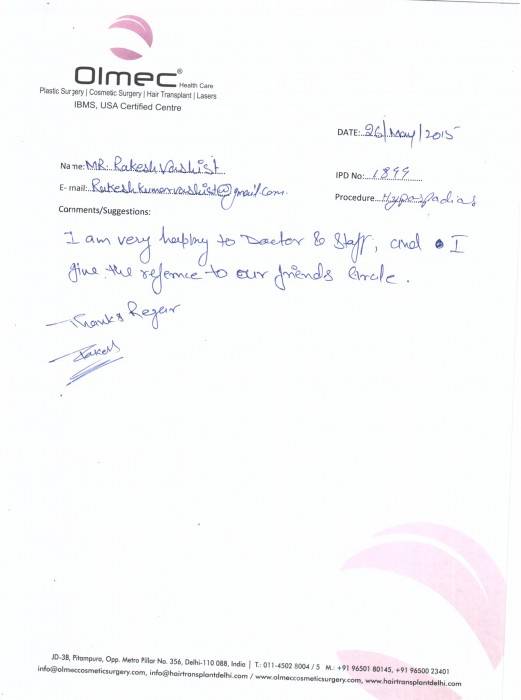 Olmec® Health Care
Plastic Surgery | Cosmetic Surgery | Hair Transplant | Lasers
IBMS, USA Certified Centre
DATE: 26/May/2015
Name: MR. Rakesh Vashist
IPD No: 1899
E-mail: Rakeshkumarvashist@gmail.com.
Procedure Hypospadias
Comments/Suggestions:
I am very to Doctor & Staff, and I
give the refernce to our friends Circle.
Thanks Regar
Rakesh
JD-3B, Pitampura, Opp. Metro Pillar No. 356, Delhi-110 088, India | T.: 011-4502 8004 / 5 M.: +91 96501 80145, +91 96500 23401
info@olmeccosmeticsurgery.com, info@hairtransplantdelhi.com / www.olmeccosmeticsurgery.com, www.hairtransplantdelhi.com